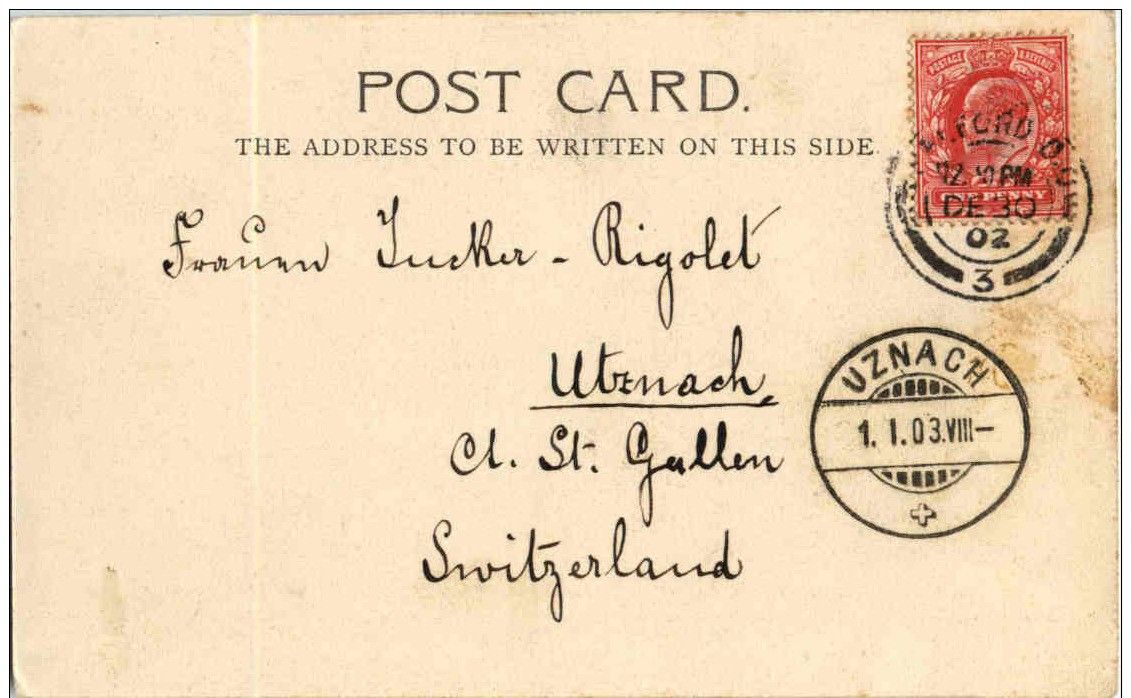 POST CARD.
THE ADDRESS TO BE WRITTEN ON THIS SIDE.
POSTAGE & REVENUE
PENNY
12.30 PM
DE 30
02
3
Frauen Tucker - Rigolet
Utznach,
Ct. St. Gallen
Switzerland
UZNACH
1. I. 03. VIII–